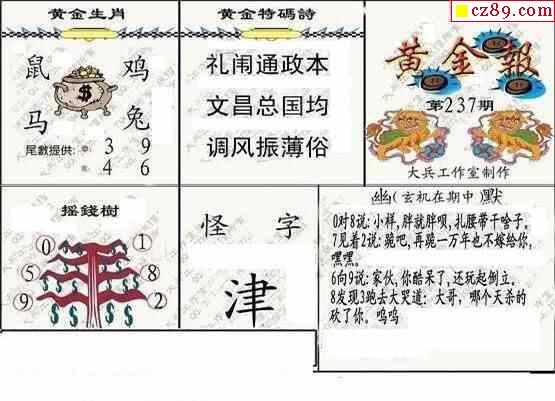 cz89.com
黄金生肖
鼠 鸡
$
马 兔
尾數提供: 3 9
4 6
黄金特碼詩
礼闹通政本
文昌总国均
调风振薄俗
黄金報
第237期
大兵工作室制作
摇錢樹
0 1
5 8
9 2
$ $ $ $ $ $
怪 字
津
幽(玄机在期中)默
0对8说:小样,胖就胖呗,扎腰带干啥子。
7见着2说:跪吧,再跪一万年也不嫁给你,
嘿嘿。
6向9说:家伙,你酷呆了,还玩起倒立。
8发现3跑去大哭道:大哥,哪个天杀的
砍了你。呜呜